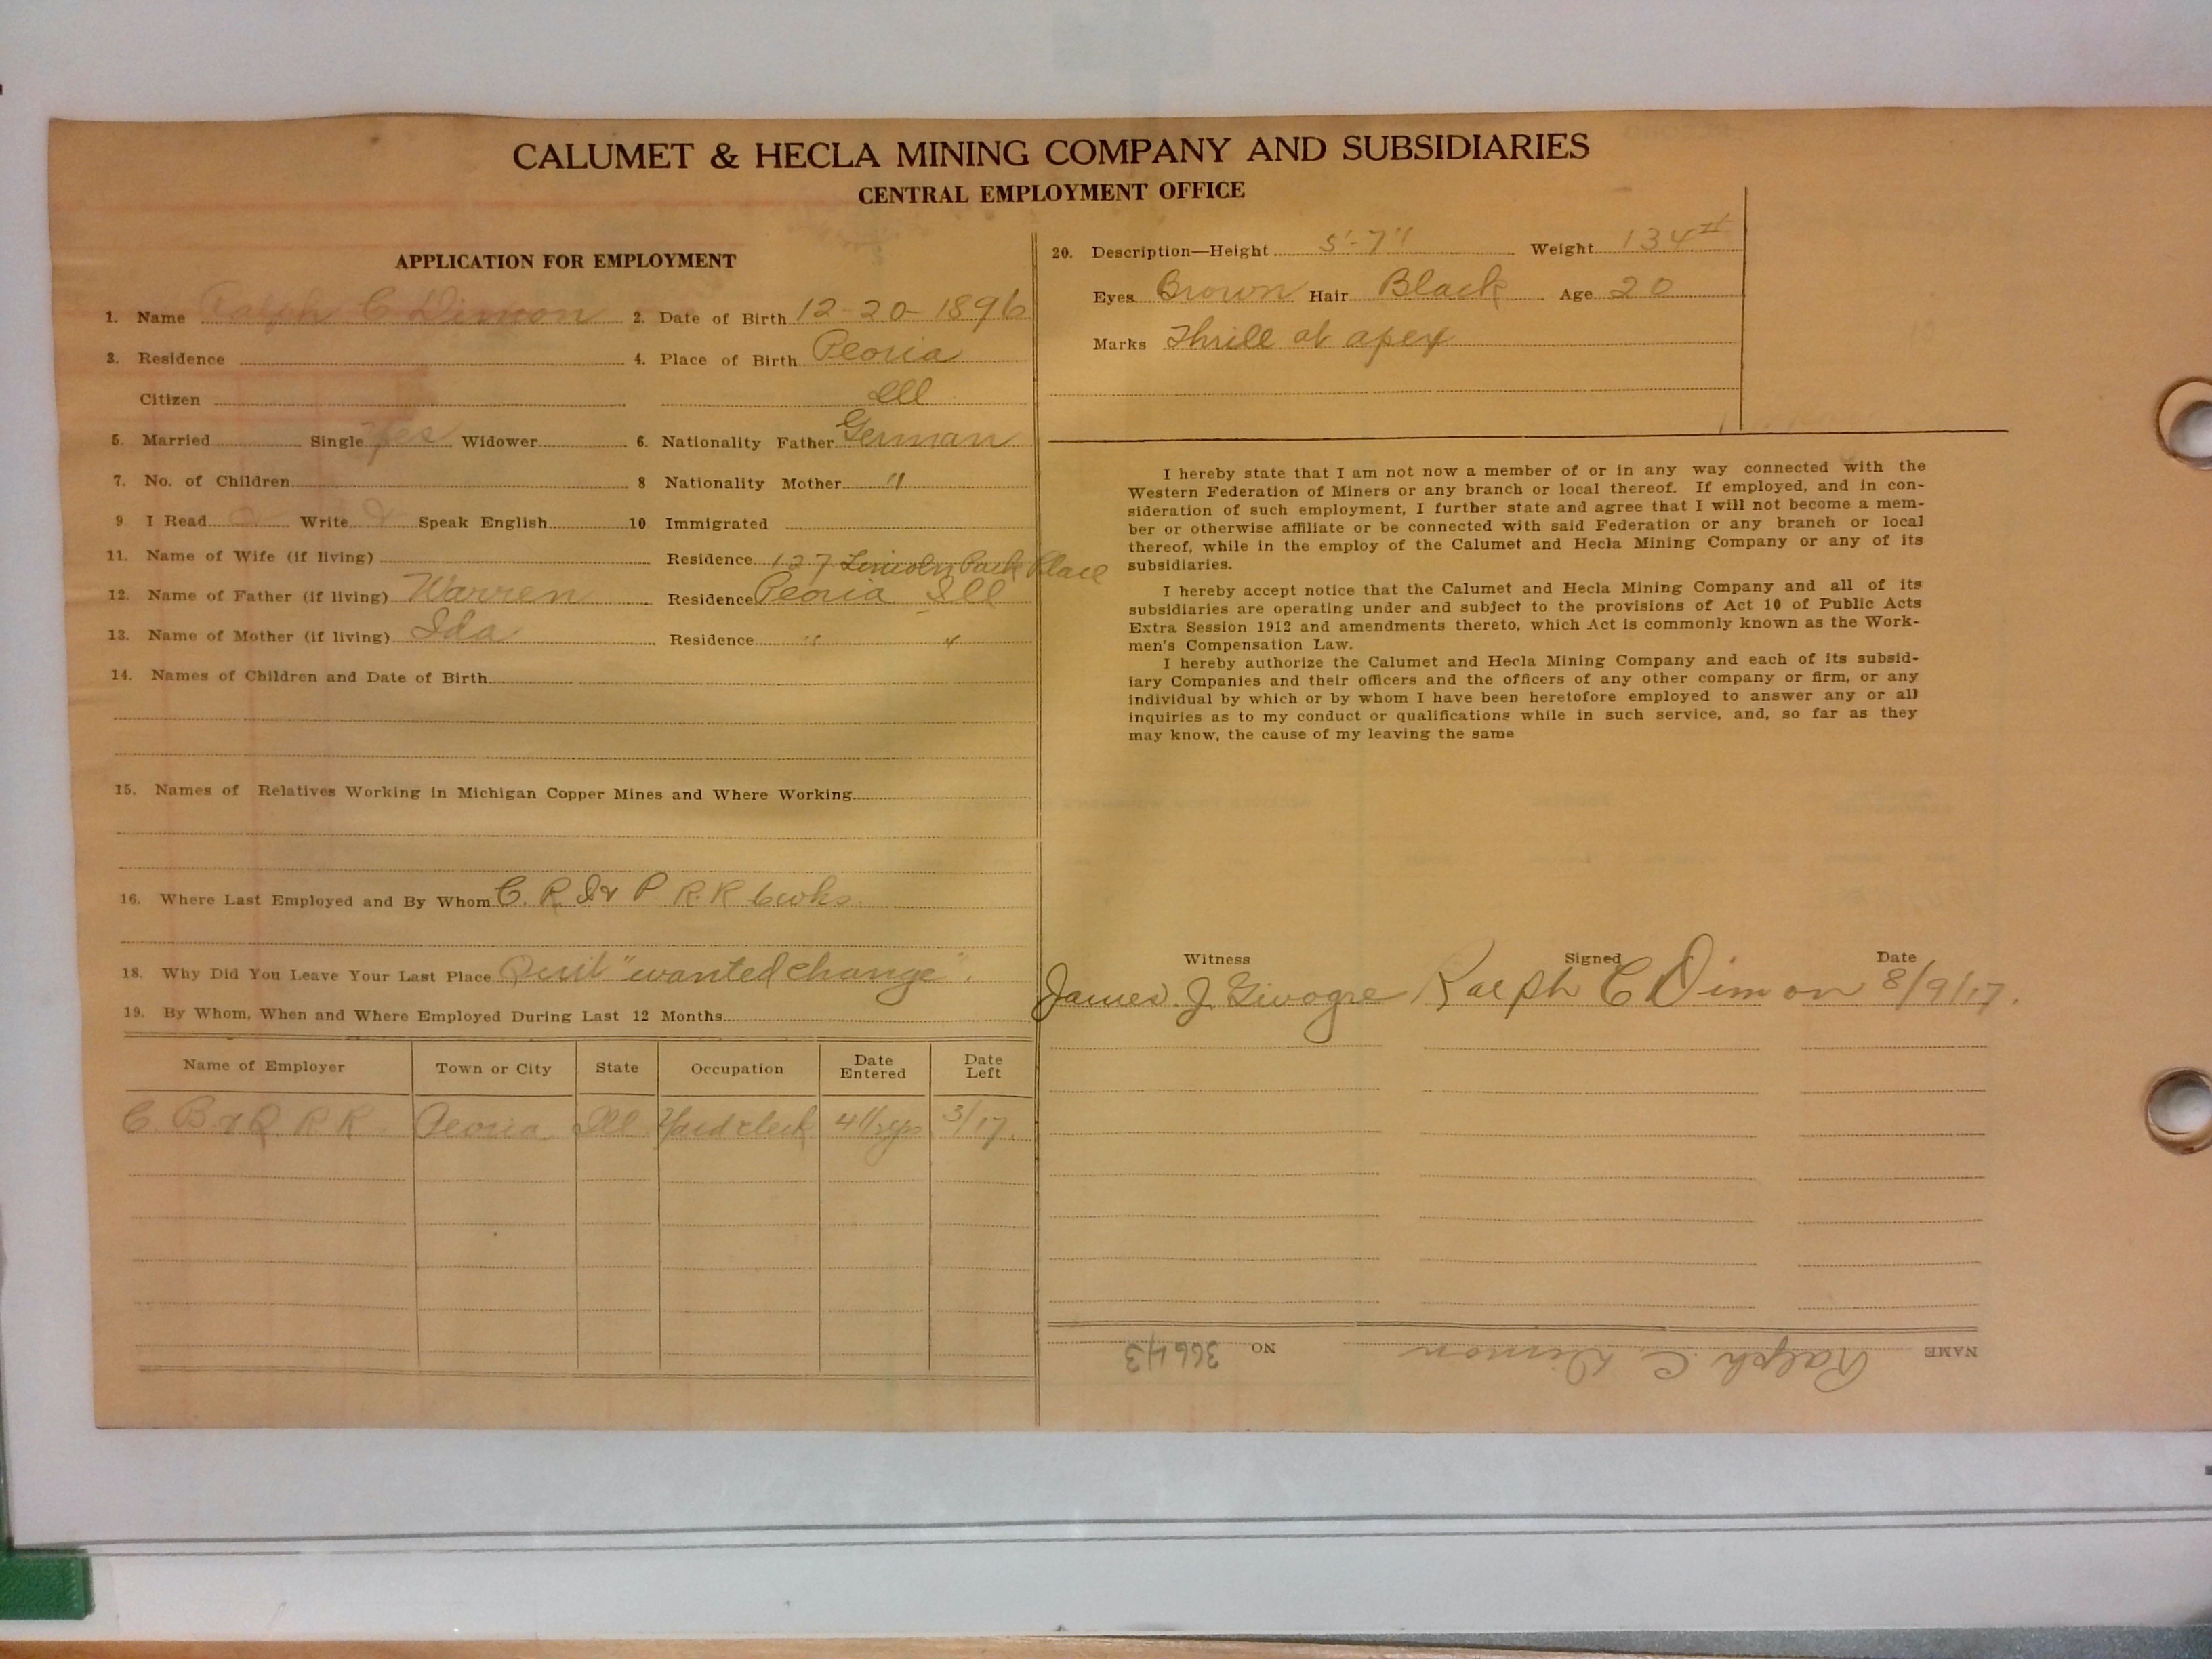 CALUMET & HECLA MINING COMPANY AND SUBSIDIARIES
CENTRAL EMPLOYMENT OFFICE
APPLICATION FOR EMPLOYMENT
1. Name Ralph C Dimon 2. Date of Birth 12-20-1896
3. Residence 4. Place of Birth Peoria
Citizen Ill
5. Married Single Yes Widower 6. Nationality Father German
7. No. of Children 8 Nationality Mother "
9 I Read Write Speak English 10 Immigrated
11. Name of Wife (if living) Residence 127 Lincoln Park Place
12. Name of Father (if living) Warren Residence Peoria Ill
13. Name of Mother (if living) Ida Residence " "
14. Names of Children and Date of Birth
15. Names of Relatives Working in Michigan Copper Mines and Where Working
16. Where Last Employed and By Whom C. R. I & P R.R 6wks.
18. Why Did You Leave Your Last Place Quit "wanted change".
19. By Whom, When and Where Employed During Last 12 Months
Name of Employer Town or City State Occupation Date Entered Date Left
C. B & Q R R. Peoria Ill Yard clerk 3/17.
20. Description—Height 5'-7" Weight 134#
Eyes Brown Hair Black Age 20
Marks Thrill at apex
I hereby state that I am not now a member of or in any way connected with the
Western Federation of Miners or any branch or local thereof. If employed, and in con-
sideration of such employment, I further state and agree that I will not become a mem-
ber or otherwise affiliate or be connected with said Federation or any branch or local
thereof, while in the employ of the Calumet and Hecla Mining Company or any of its
subsidiaries.
I hereby accept notice that the Calumet and Hecla Mining Company and all of its
subsidiaries are operating under and subject to the provisions of Act 10 of Public Acts
Extra Session 1912 and amendments thereto, which Act is commonly known as the Work-
men's Compensation Law.
I hereby authorize the Calumet and Hecla Mining Company and each of its subsid-
iary Companies and their officers and the officers of any other company or firm, or any
individual by which or by whom I have been heretofore employed to answer any or all
inquiries as to my conduct or qualifications while in such service, and, so far as they
may know, the cause of my leaving the same
Witness Signed Date
James J. Ralph C Dimon 8/9/17.
NAME Ralph C. Dimon NO 36643